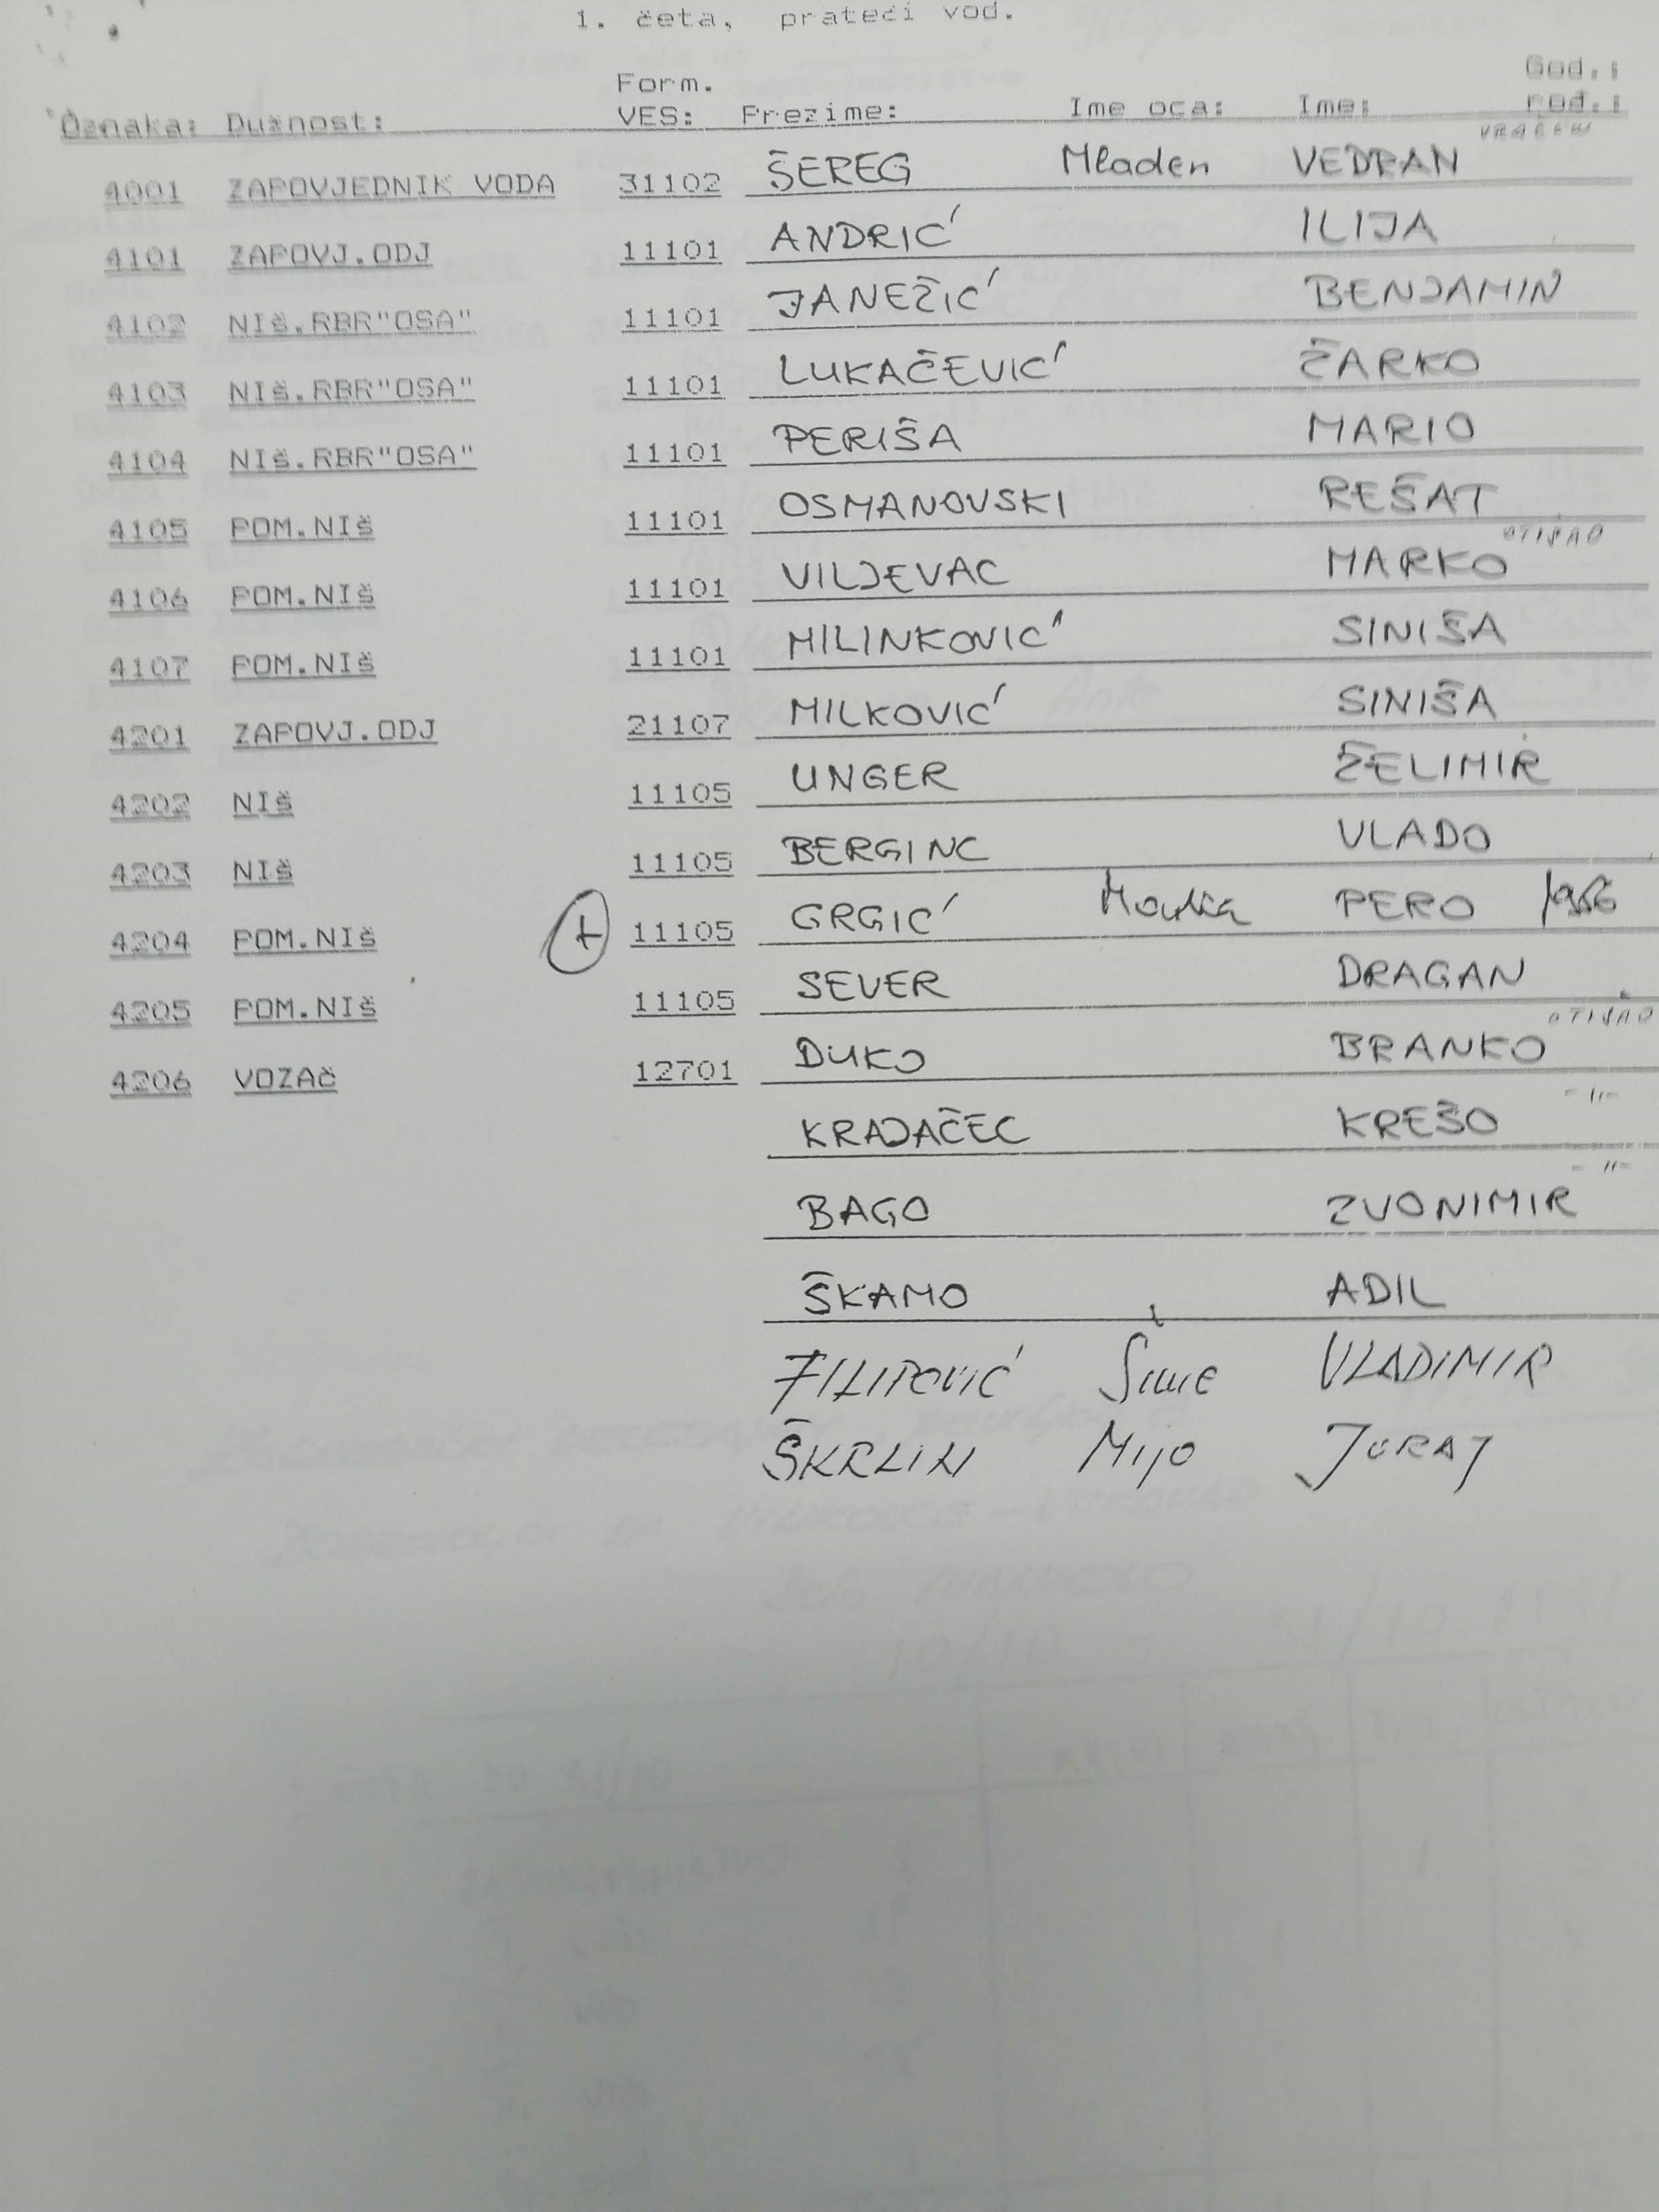 1. četa, prateći vod.
Form. God.:
Oznaka: Dužnost: VES: Prezime: Ime oca: Ime: rođ.:
VRAĆEN
4001 ZAPOVJEDNIK VODA 31102 ŠEREG Mladen VEDRAN
4101 ZAPOVJ.ODJ 11101 ANDRIĆ ILIJA
4102 NIš.RBR"OSA" 11101 JANEŽIĆ BENJAMIN
4103 NIš.RBR"OSA" 11101 LUKAČEVIĆ ŽARKO
4104 NIš.RBR"OSA" 11101 PERIŠA MARIO
4105 POM.NIš 11101 OSMANOVSKI REŠAT
OTIŠAO
4106 POM.NIš 11101 VILJEVAC MARKO
4107 POM.NIš 11101 MILINKOVIĆ SINIŠA
4201 ZAPOVJ.ODJ 21107 MILKOVIĆ SINIŠA
4202 NIš 11105 UNGER ŽELIMIR
4203 NIš 11105 BERGINC VLADO
4204 POM.NIš + 11105 GRGIĆ PERO
4205 POM.NIš 11105 SEVER DRAGAN
OTIŠAO
4206 VOZAč 12701 DUKO BRANKO
KRAJAČEC KREŠO -"-
BAGO ZVONIMIR -"-
ŠKAMO ADIL
FILIPOVIĆ Šime VLADIMIR
ŠKRLIN Mijo JURAJ